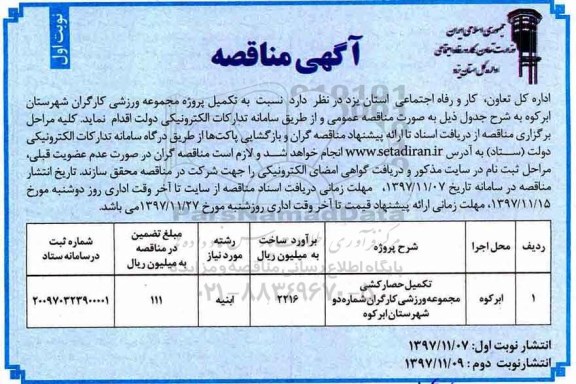 نوبت اول
جمهوری اسلامی ایران
وزارت تعاون، کار و رفاه اجتماعی
اداره کل استان یزد
آگهی مناقصه
اداره کل تعاون، کار و رفاه اجتماعی استان یزد در نظر دارد نسبت به تکمیل پروژه مجموعه ورزشی کارگران شهرستان
ابرکوه به شرح جدول ذیل به صورت مناقصه عمومی و از طریق سامانه تدارکات الکترونیکی دولت اقدام نماید. کلیه مراحل
برگزاری مناقصه از دریافت اسناد تا ارائه پیشنهاد مناقصه گران و بازگشایی پاکت‌ها از طریق درگاه سامانه تدارکات الکترونیکی
دولت (ستاد) به آدرس www.setadiran.ir انجام خواهد شد و لازم است مناقصه گران در صورت عدم عضویت قبلی،
مراحل ثبت نام در سایت مذکور و دریافت گواهی امضای الکترونیکی را جهت شرکت در مناقصه محقق سازند. تاریخ انتشار
مناقصه در سامانه تاریخ ۱۳۹۷/۱۱/۰۷، مهلت زمانی دریافت اسناد مناقصه از سایت تا آخر وقت اداری روز دوشنبه مورخ
۱۳۹۷/۱۱/۱۵، مهلت زمانی ارائه پیشنهاد قیمت تا آخر وقت اداری روزشنبه مورخ ۱۳۹۷/۱۱/۲۷ می باشد.
ردیف محل اجرا شرح پروژه برآورد ساخت به میلیون ریال رشته مورد نیاز مبلغ تضمین در مناقصه به میلیون ریال شماره ثبت در سامانه ستاد
۱ ابرکوه تکمیل حصارکشی مجموعه ورزشی کارگران شماره دو شهرستان ابرکوه ۲۲۱۶ ابنیه ۱۱۱ ۲۰۰۹۷۰۳۲۳۹۰۰۰۰۱
پایگاه اطلاع رسانی مناقصه و مزایده
۰۲۱-۸۸۳۴۹۶۷۰
انتشار نوبت اول: ۱۳۹۷/۱۱/۰۷
انتشار نوبت دوم: ۱۳۹۷/۱۱/۰۹